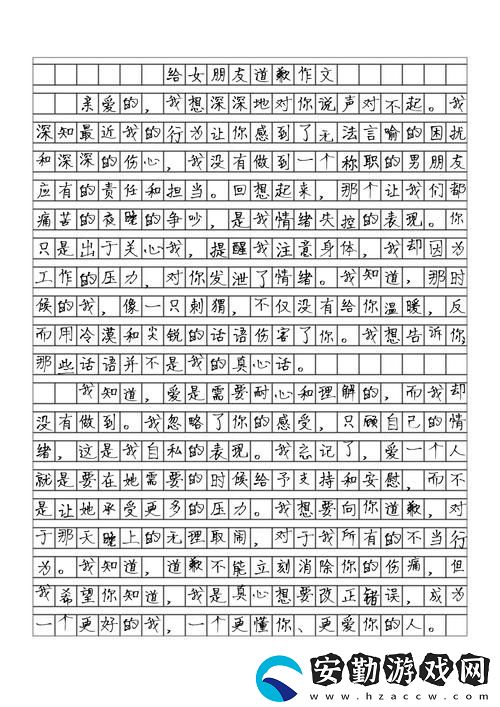 给女朋友道歉作文
亲爱的，我想深深地对你说声对不起。我
深知最近我的行为让你感到了无法言喻的困扰
和深深的伤心，我没有做到一个称职的男朋友
应有的责任和担当。回想起来，那个让我们都
痛苦的夜晚的争吵，是我情绪失控的表现。你
只是出于关心我，提醒我注意身体，我却因为
工作的压力，对你发泄了情绪。我知道，那时
候的我，像一只刺猬，不仅没有给你温暖，反
而用冷漠和尖锐的话语伤害了你。我想告诉你，
那些话语并不是我的真心话。
我知道，爱是需要耐心和理解的，而我却
没有做到。我忽略了你的感受，只顾自己的情
绪，这是我自私的表现。我忘记了，爱一个人
就是要在她需要的时候给予支持和安慰，而不
是让她承受更多的压力。我想要向你道歉，对
于那天晚上的无理取闹，对于我所有的不当行
为。我知道，道歉不能立刻消除你的伤痛，但
我希望你知道，我是真心想要改正错误，成为
一个更好的我，一个更懂你、更爱你的人。
安勤游戏网
www.hzaccw.com